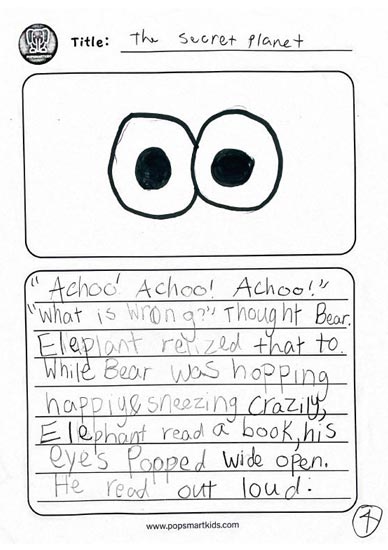 Title: The Secret Planet
"Achoo! Achoo! Achoo!"
"What is wrong?" Thought Bear.
Eleplant relized that to.
While Bear was hopping
happiy & sneezing crazily,
Elephant read a book, his
eye's Popped wide open.
He read out loud:
www.popsmartkids.com
4